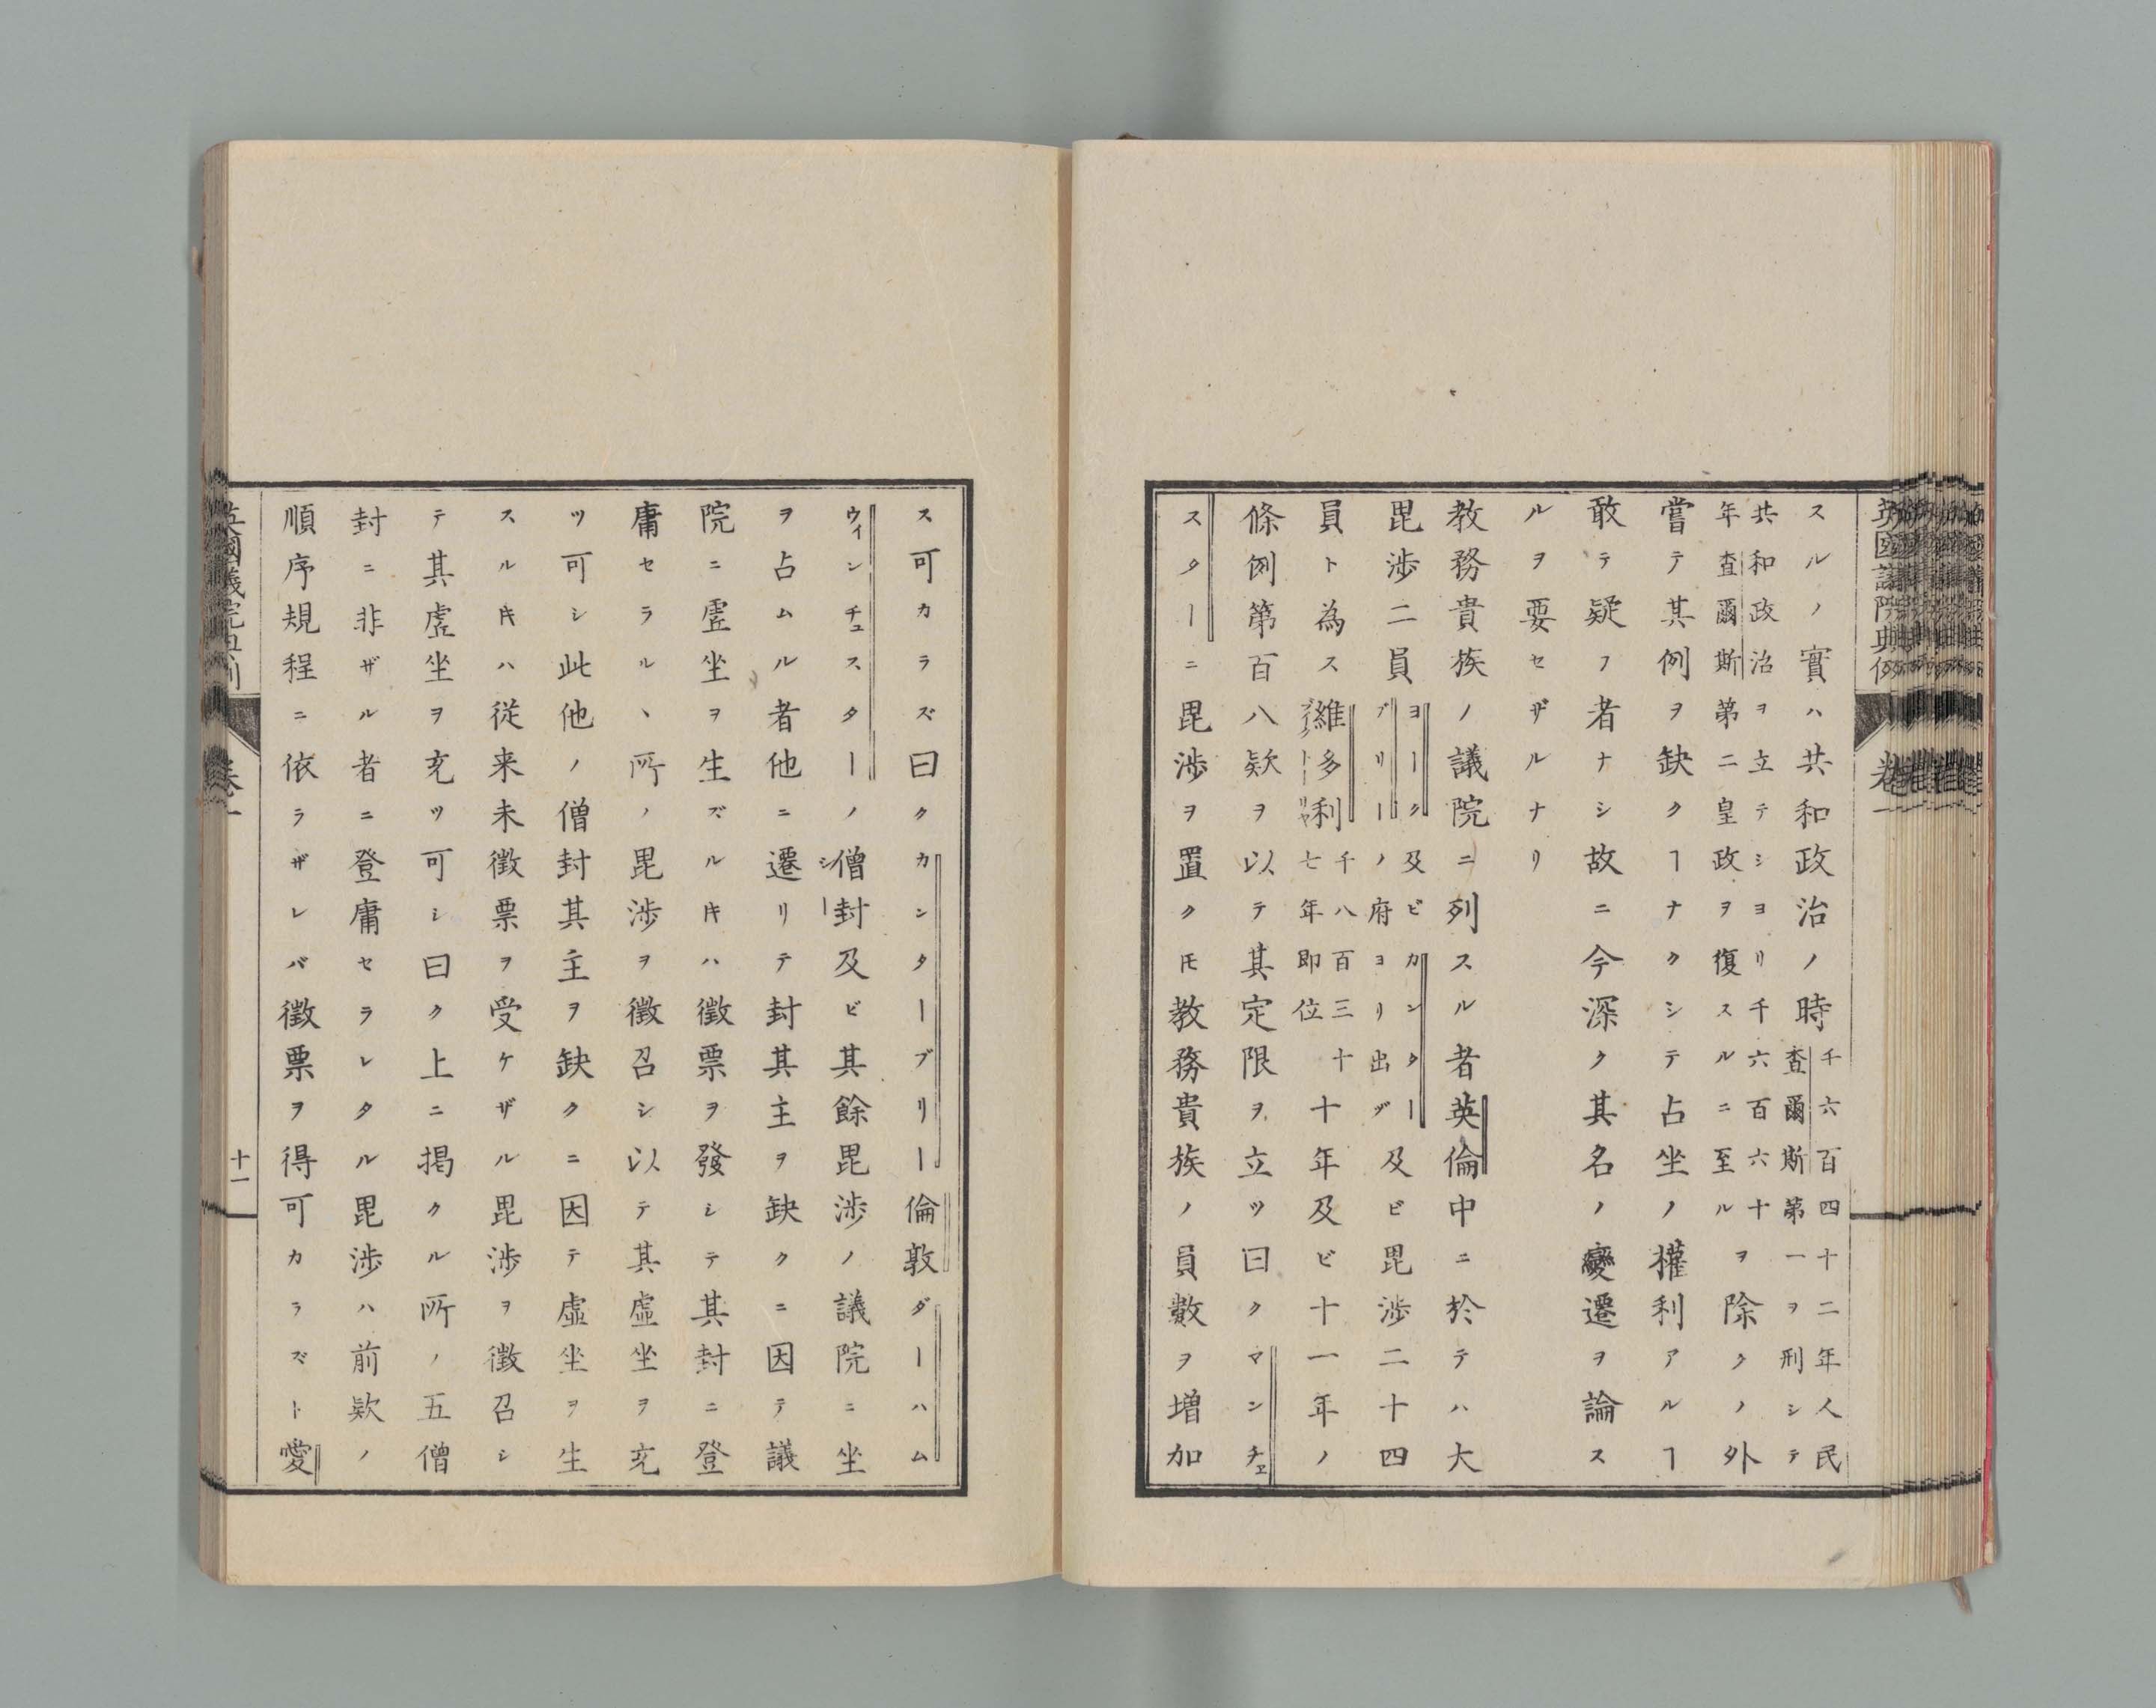 英國議院典例
卷一
スルノ實ハ共和政治ノ時千六百四十二年人民
査爾斯第一ヲ刑シテ
共和政治ヲ立テシヨリ千六百六十
年査爾斯第二皇政ヲ復スルニ至ルヲ除クノ外
嘗テ其例ヲ缺クヿナクシテ占坐ノ權利アルヿ
敢テ疑フ者ナシ故ニ今深ク其名ノ變遷ヲ論ス
ルヲ要セザルナリ
教務貴族ノ議院ニ列スル者英倫中ニ於テハ大
毘渉二員ヨーク及ビカンター
ブリーノ府ヨリ出ヅ及ビ毘渉二十四
員ト為ス維多利ヴィクトーリヤ千八百三十
七年即位十年及ビ十一年ノ
條例第百八欵ヲ以テ其定限ヲ立ツ曰クマンチェ
スターニ毘渉ヲ置クモ教務貴族ノ員數ヲ増加
ス可カラズ曰クカンターブリー倫敦ダーハム
ウィンチェスターノ僧封シー及ビ其餘毘渉ノ議院ニ坐
ヲ占ムル者他ニ遷リテ封其主ヲ缺クニ因テ議
院ニ虛坐ヲ生ズルキハ徵票ヲ發シテ其封ニ登
庸セラルヽ所ノ毘渉ヲ徵召シ以テ其虛坐ヲ充
ツ可シ此他ノ僧封其主ヲ缺クニ因テ虛坐ヲ生
スルキハ従来未徵票ヲ受ケザル毘渉ヲ徵召シ
テ其虛坐ヲ充ツ可シ曰ク上ニ掲クル所ノ五僧
封ニ非ザル者ニ登庸セラレタル毘渉ハ前欵ノ
順序規程ニ依ラザレバ徵票ヲ得可カラズト愛
英國議院典例
卷一
十一